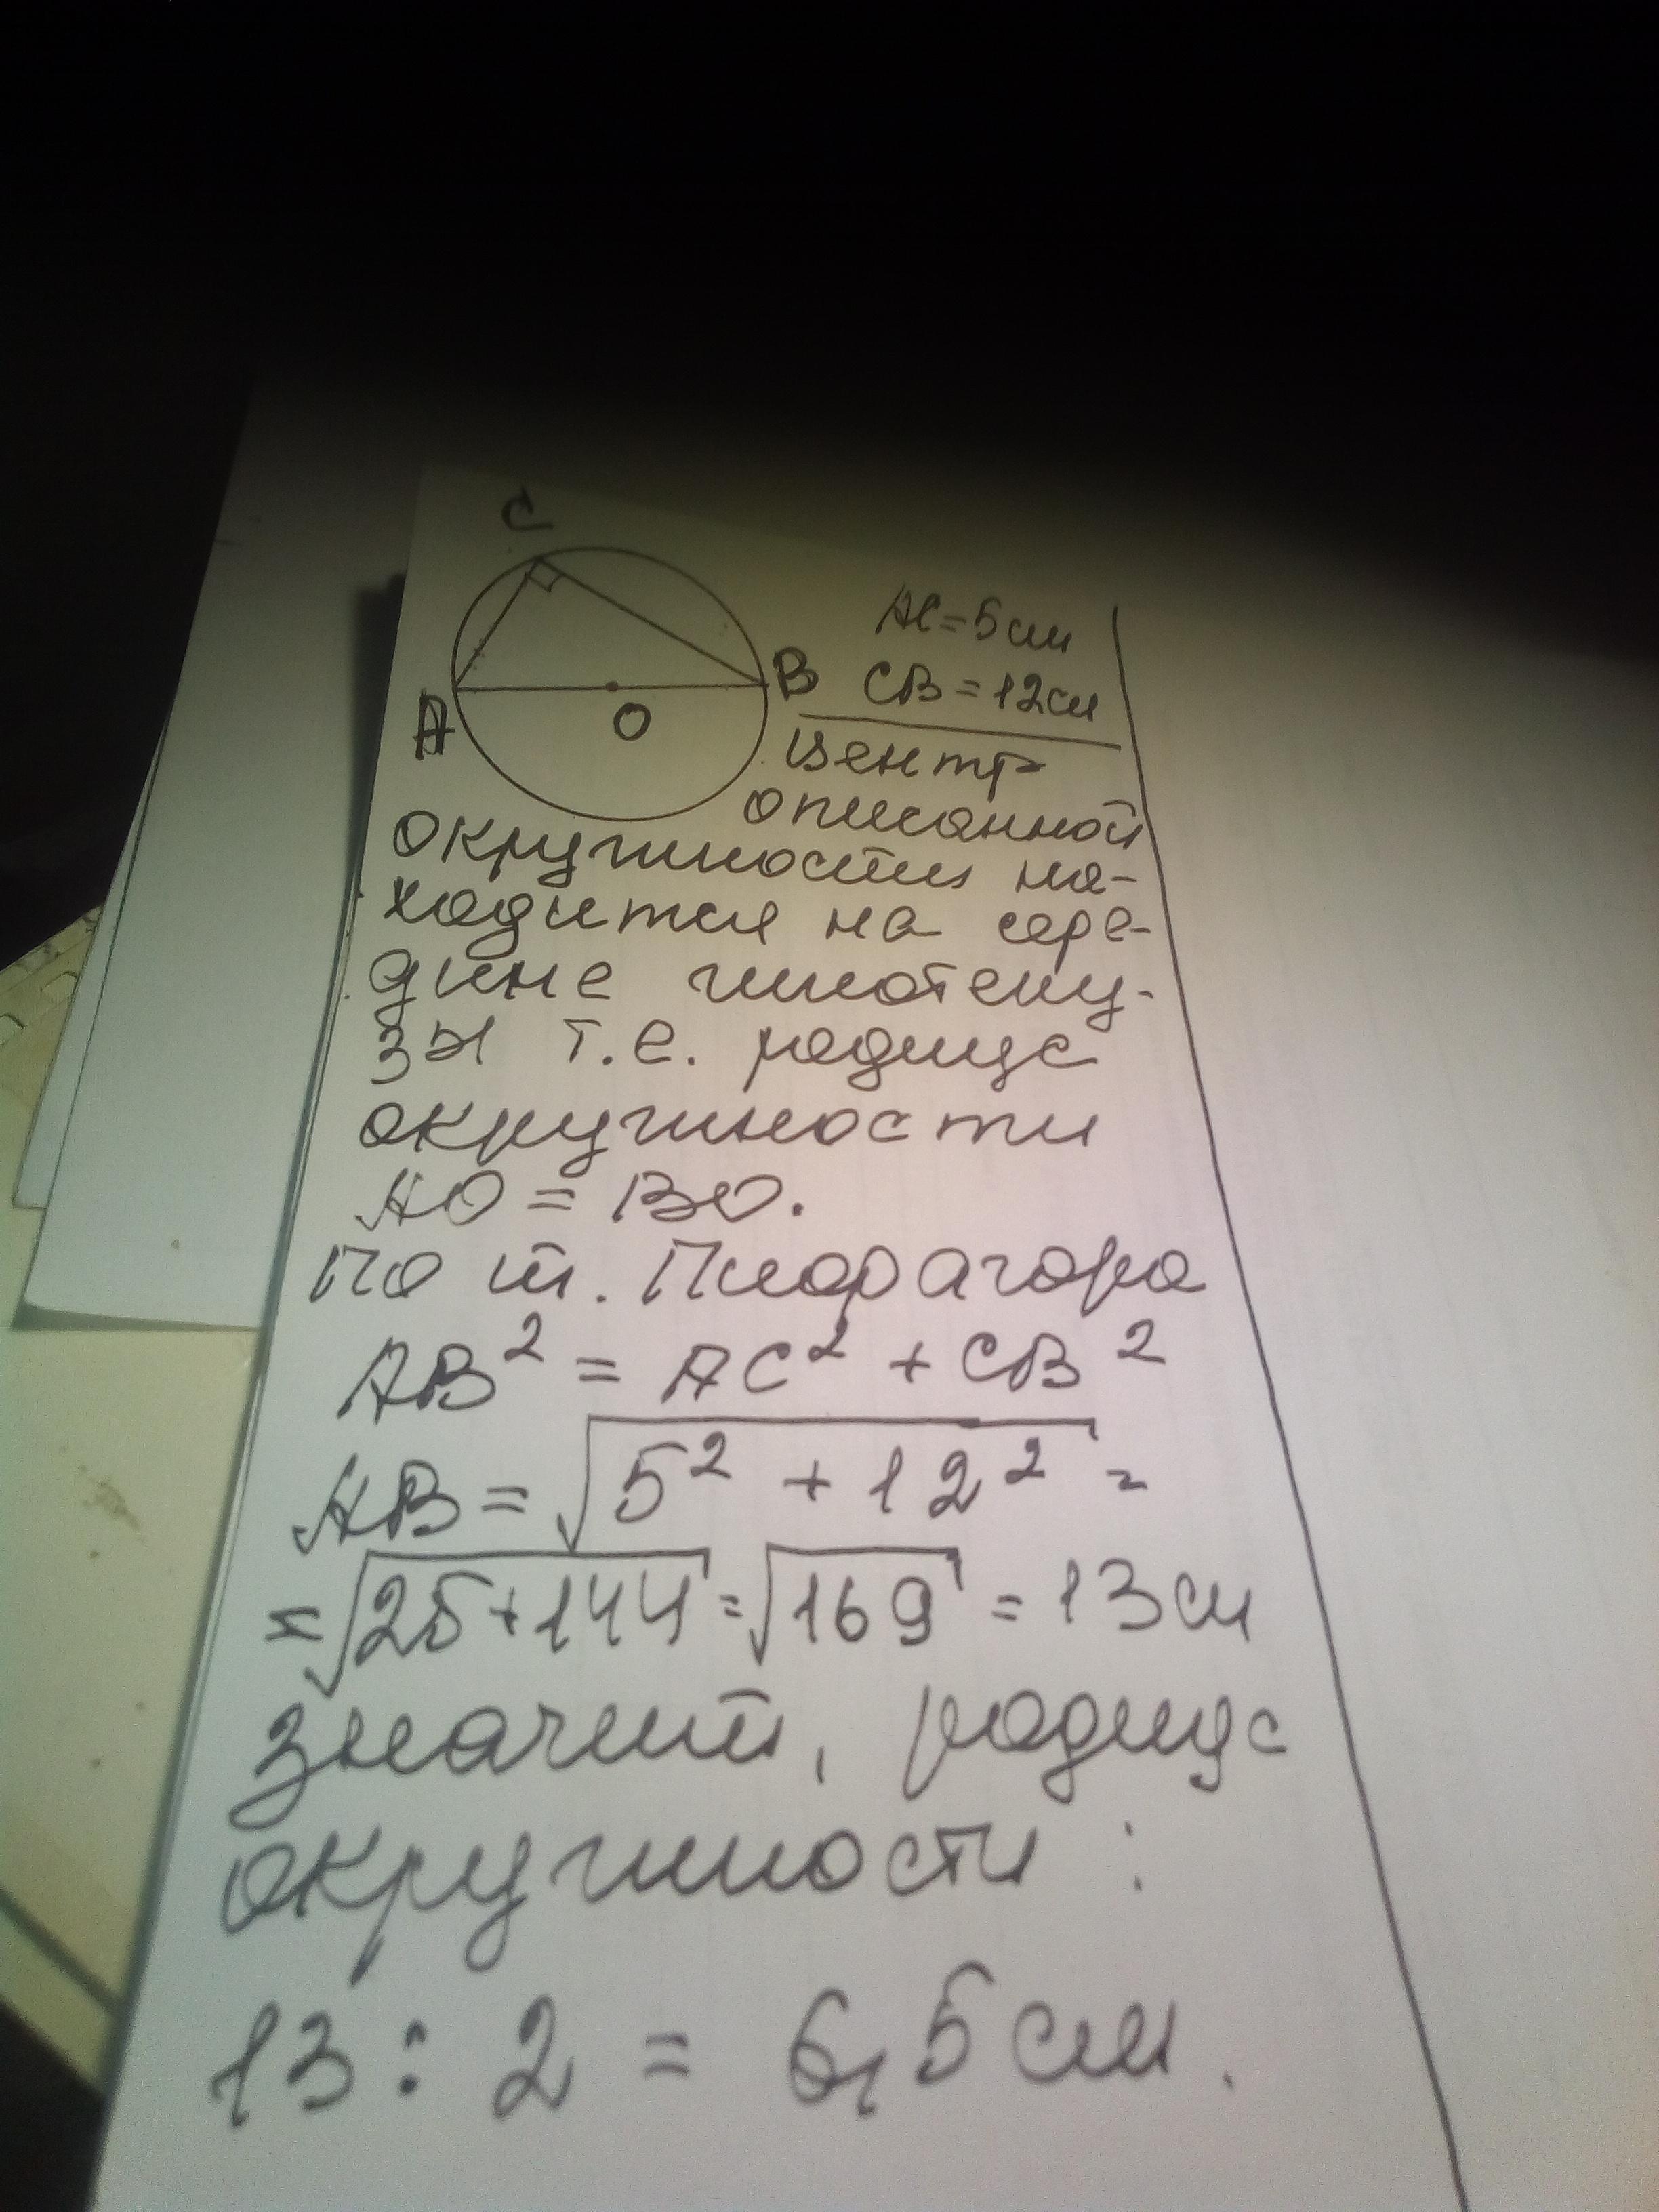 C
A
B
O
AC=5см
CB=12см
Центр
описанной
окружности на-
ходится на сере-
дине гипотену-
зы т.е. радиус
окружности
AO = BO.
По т. Пифагора
AB² = AC² + CB²
AB = √5² + 12² =
= √25+144 = √169 = 13см
значит, радиус
окружности :
13 : 2 = 6,5см.